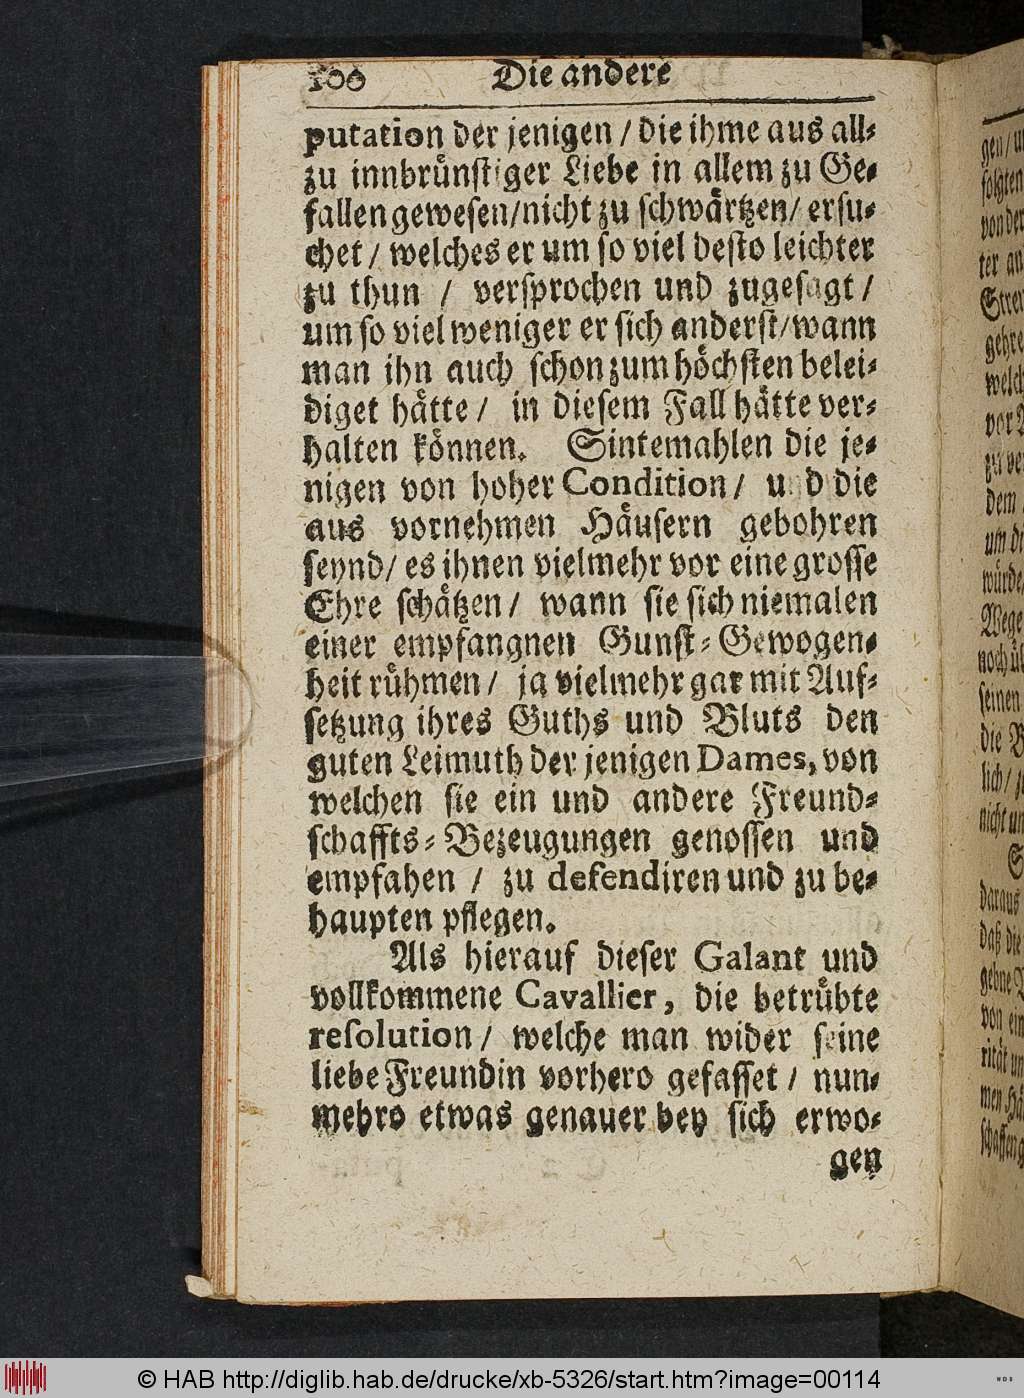 100 Die andere
putation der jenigen / die ihme aus all-
zu innbrünstiger Liebe in allem zu Ge-
fallen gewesen/nicht zu schwärtzen/ ersu-
chet / welches er um so viel desto leichter
zu thun / versprochen und zugesagt /
um so viel weniger er sich anderst/wann
man ihn auch schon zum höchsten belei-
diget hätte / in diesem Fall hätte ver-
halten können. Sintemahlen die je-
nigen von hoher Condition / und die
aus vornehmen Häusern gebohren
seynd/ es ihnen vielmehr vor eine grosse
Ehre schätzen / wann sie sich niemalen
einer empfangnen Gunst-Gewogen-
heit rühmen / ja vielmehr gar mit Auf-
setzung ihres Guths und Bluts den
guten Leimuth der jenigen Dames, von
welchen sie ein und andere Freund-
schaffts-Bezeugungen genossen und
empfahen / zu defendiren und zu be-
haupten pflegen.
Als hierauf dieser Galant und
vollkommene Cavallier, die betrübte
resolution / welche man wider seine
liebe Freundin vorhero gefasset / nun-
mehro etwas genauer bey sich erwo-
gen
© HAB http://diglib.hab.de/drucke/xb-5326/start.htm?image=00114